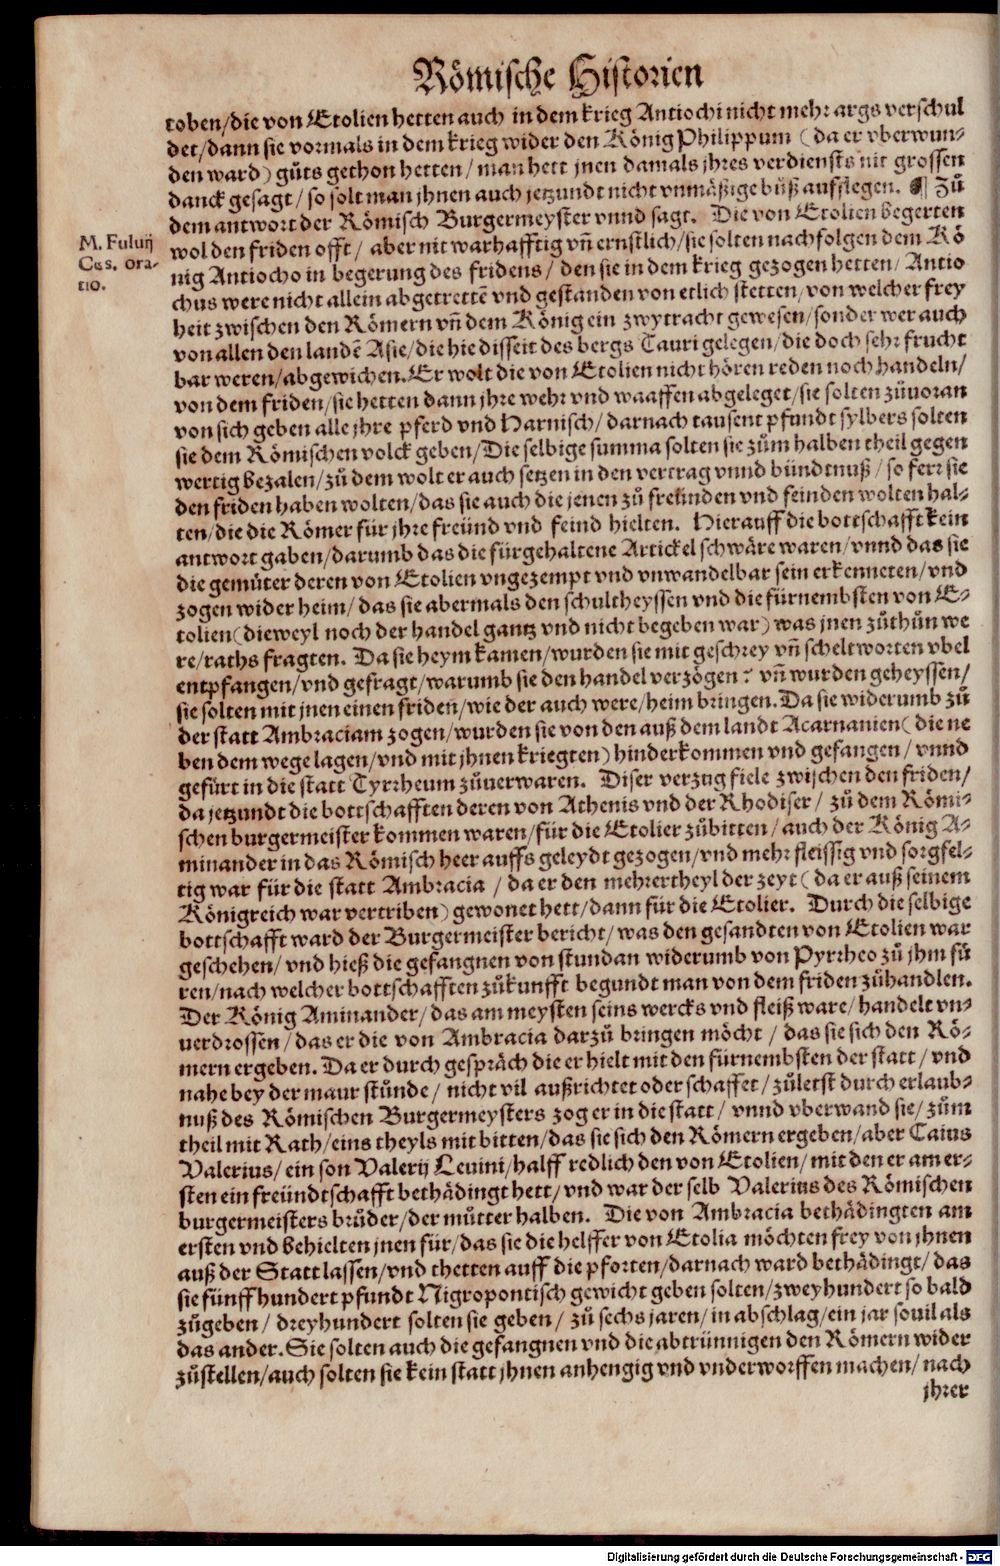 Römische Historien
toben/die von Etolien hetten auch in dem krieg Antiochi nicht mehr args verschul
det/dann sie vormals in dem krieg wider den König Philippum (da er vberwun-
den ward) gůts gethon hetten/man hett jnen damals jhres verdiensts nit grossen
danck gesagt/so solt man jhnen auch jetzundt nicht vnmäßige bůß aufflegen. ¶ Zů
dem antwort der Römisch Burgermeyster vnnd sagt. Die von Etolien begerten
M. Fuluij
Cos. ora-
tio.
wol den friden offt/aber nit warhafftig vñ ernstlich/sie solten nachfolgen dem Kö
nig Antiocho in begerung des fridens/den sie in dem krieg gezogen hetten/Antio
chus were nicht allein abgetrettē vnd gestanden von etlich stetten/von welcher frey
heit zwischen den Römern vñ dem König ein zwytracht gewesen/sonder wer auch
von allen den landē Asie/die hie disseit des bergs Tauri gelegen/die doch sehr frucht
bar weren/abgewichen. Er wolt die von Etolien nicht hören reden noch handeln/
von dem friden/sie hetten dann jhre wehr vnd waaffen abgeleget/sie solten zůuoran
von sich geben alle jhre pferd vnd Harnisch/darnach tausent pfundt sylbers solten
sie dem Römischen volck geben/Die selbige summa solten sie zům halben theil gegen
wertig bezalen/zů dem wolt er auch setzen in den vertrag vnnd bündtnuß/so ferr sie
den friden haben wolten/das sie auch die jenen zů freünden vnd feinden wolten hal-
ten/die die Römer für jhre freünd vnd feind hielten. Hierauff die bottschafft kein
antwort gaben/darumb das die fürgehaltene Artickel schwäre waren/vnnd das sie
die gemüter deren von Etolien vngezempt vnd vnwandelbar sein erkenneten/vnd
zogen wider heim/das sie abermals den schultheyssen vnd die fürnembsten von E-
tolien(dieweyl noch der handel gantz vnd nicht begeben war)was jnen zůthůn we
re/raths fragten. Da sie heym kamen/wurden sie mit geschrey vñ scheltworten vbel
entpfangen/vnd gefragt/warumb sie den handel verzögen? vñ wurden geheyssen/
sie solten mit jnen einen friden/wie der auch were/heim bringen. Da sie widerumb zů
der statt Ambraciam zogen/wurden sie von den auß dem landt Acarnanien(die ne
ben dem wege lagen/vnd mit jhnen kriegten)hinderkommen vnd gefangen/vnnd
gefürt in die statt Tyrrheum zůuerwaren. Diser verzug fiele zwischen den friden/
da jetzundt die bottschafften deren von Athenis vnd der Rhodiser/zů dem Römi-
schen burgermeister kommen waren/für die Etolier zůbitten/auch der König A-
minander in das Römisch heer auffs geleydt gezogen/vnd mehr fleissig vnd sorgfel-
tig war für die statt Ambracia/da er den mehrertheyl der zeyt(da er auß seinem
Königreich war vertriben)gewonet hett/dann für die Etolier. Durch die selbige
bottschafft ward der Burgermeister bericht/was den gesandten von Etolien war
geschehen/vnd hieß die gefangnen von stundan widerumb von Pyrrheo zů jhm fü
ren/nach welcher bottschafften zůkunfft begundt man von dem friden zůhandlen.
Der König Aminander/das am meysten seins wercks vnd fleiß ware/handelt vn-
uerdrossen/das er die von Ambracia darzů bringen möcht/das sie sich den Rö-
mern ergeben. Da er durch gespräch die er hielt mit den fürnembsten der statt/vnd
nahe bey der maur stůnde/nicht vil außrichtet oder schaffet/zůletst durch erlaub-
nuß des Römischen Burgermeysters zog er in die statt/vnnd vberwand sie/zům
theil mit Rath/eins theyls mit bitten/das sie sich den Römern ergeben/aber Caius
Valerius/ein son Valerij Leuini/halff redlich den von Etolien/mit den er am er-
sten ein freündtschafft bethädingt hett/vnd war der selb Valerius des Römischen
burgermeisters brůder/der můtter halben. Die von Ambracia bethädingten am
ersten vnd behielten jnen für/das sie die helffer von Etolia möchten frey von jhnen
auß der Statt lassen/vnd thetten auff die pforten/darnach ward bethädingt/das
sie fünff hundert pfundt Nigropontisch gewicht geben solten/zweyhundert so bald
zůgeben/dreyhundert solten sie geben/zů sechs jaren/in abschlag/ein jar souil als
das ander. Sie solten auch die gefangnen vnd die abtrünnigen den Römern wider
zůstellen/auch solten sie kein statt jhnen anhengig vnd vnderworffen machen/nach
jhrer
Digitalisierung gefördert durch die Deutsche Forschungsgemeinschaft - DFG